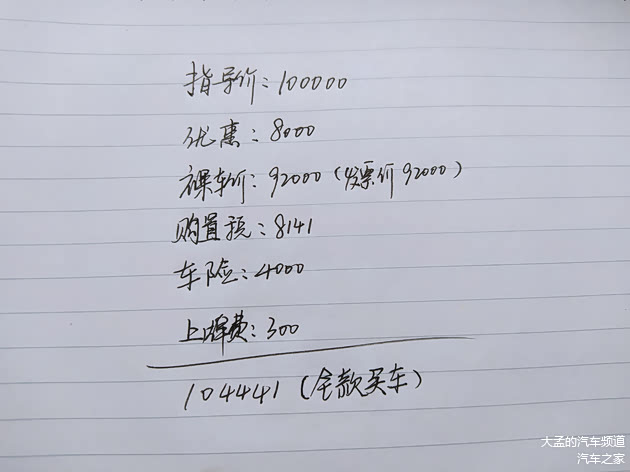 指导价:100000
优惠:8000
裸车价:92000(发票价92000)
购置税:8141
车险:4000
上牌费:300
104441(全款买车)
大孟的汽车频道
汽车之家